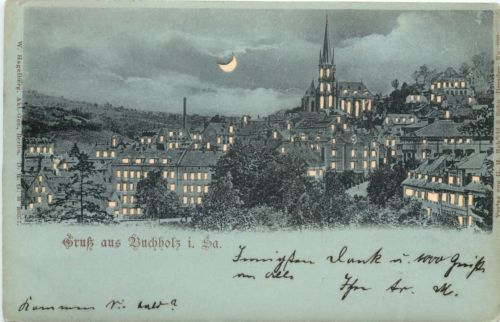 W. Hagelberg, Akt.-Ges., Berlin.
Gruß aus Buchholz i. Sa.
Innigsten Dank u. 1000 Grüße
an Alle
Ihr Ar. M.
Kommen Sie bald?